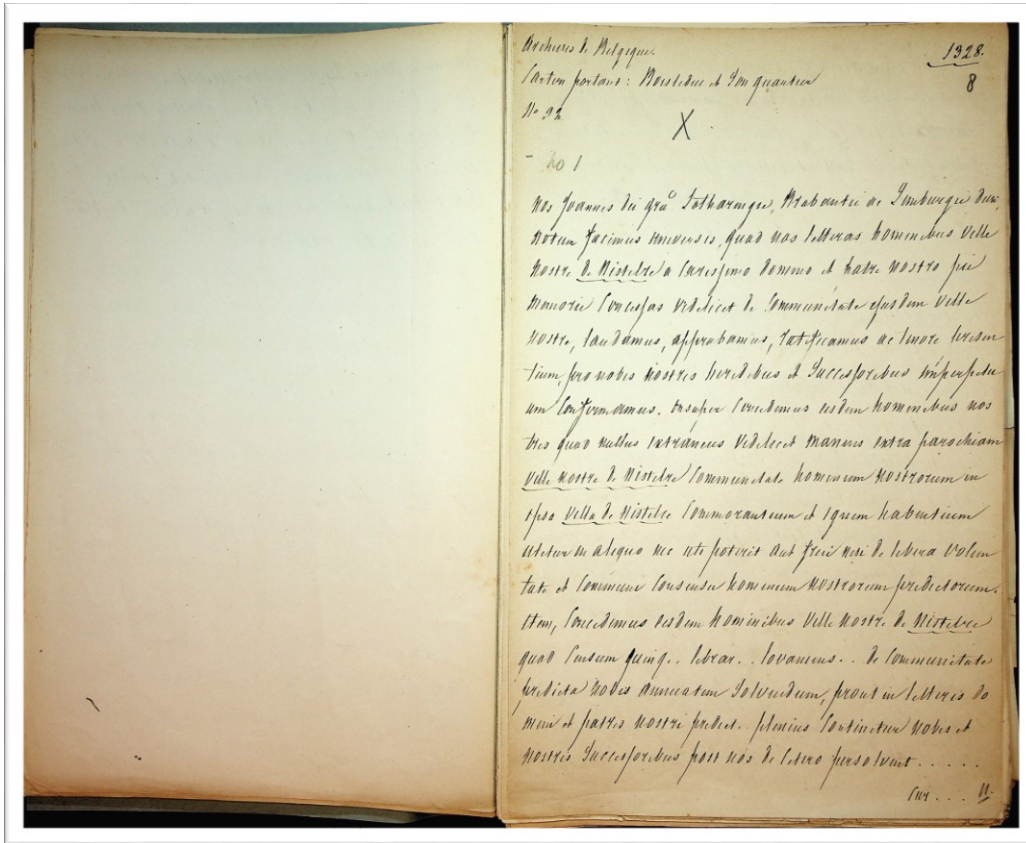 Archives de Belgique.
1328.
Carton portant: Boisleduc et son quartier
8
No 32
X
no 1
Nos Joannes dei grã Lotharingie, Brabantie ac Limburgie dux,
notum facimus universis, quod nos litteras hominibus ville
nostre de Nistelre a carissimo domino et patre nostro pie
memorie concessas videlicet de communitate ejusdem ville
nostre, laudamus, approbamus, ratificamus ac tenore presen
tium, pro nobis nostris heredibus et successoribus imperpetu
um confirmamus. Insuper concedimus eisdem hominibus nos
tris quod nullus extraneus videlicet manens extra parochiam
ville nostre de Nistelre communitate hominum nostrorum in
ipsa villa de Nistelre commorantium et ignem habentium
utetur in aliquo nec uti poterit aut frui nisi de libera volun
tate et communi consensu hominum nostrorum predictorum.
Item, concedimus eisdem hominibus ville nostre de Nistelre
quod censum quinq.. librar.. lovaniens.. de communitate
predicta nobis annuatim solvendum, prout in litteris do
mini et patris nostri predict.. plenius continetur nobis et
nostris successoribus post nos de cetero persolvent.....